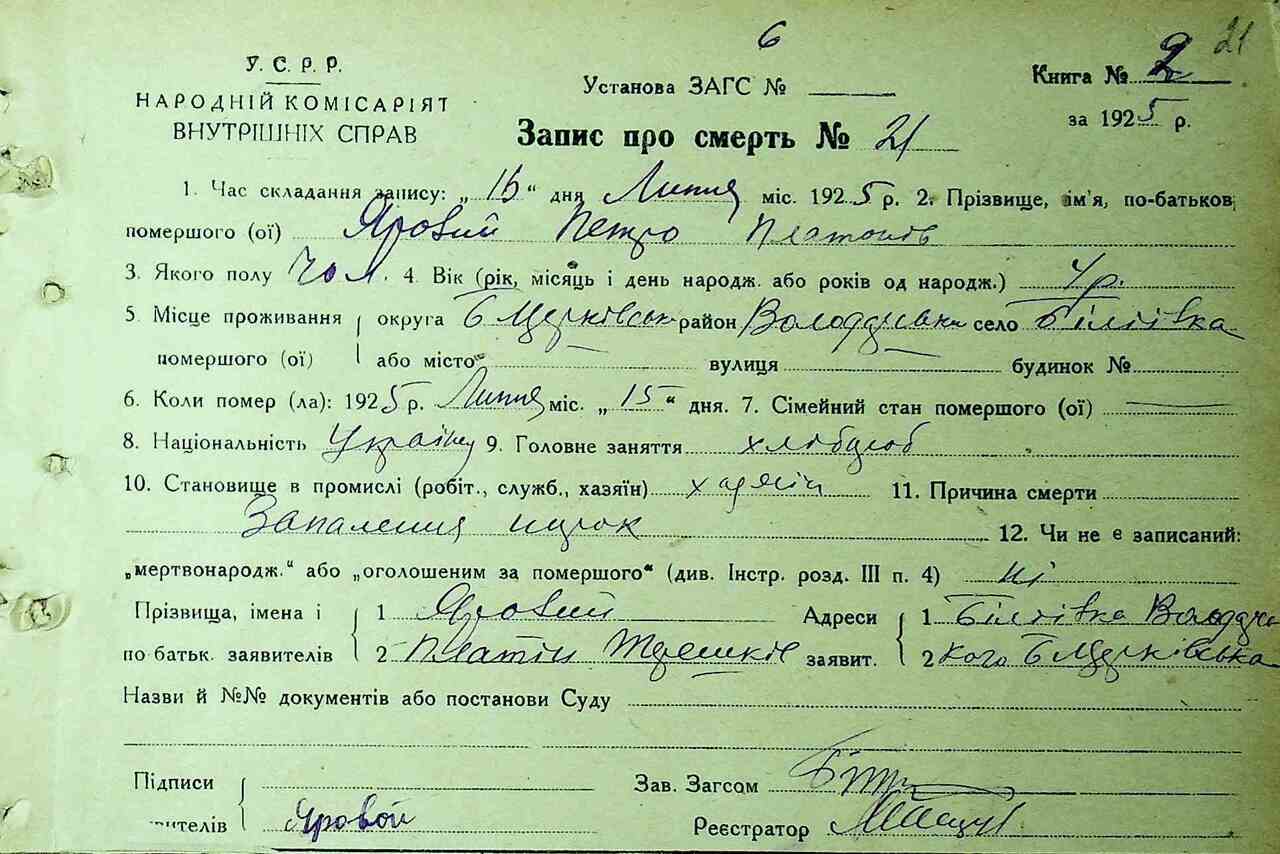 6
21
У. С. Р. Р.
НАРОДНІЙ КОМІСАРІЯТ
ВНУТРІШНІХ СПРАВ
Установа ЗАГС №
Книга № 2
за 1925 р.
Запис про смерть № 21
1. Час складання запису: „16“ дня Липня міс. 1925 р. 2. Прізвище, ім'я, по-батькові
помершого (ої) Яровий Петро Платонів
3. Якого полу Чол. 4. Вік (рік, місяць і день народж. або років од народж.) 4 р.
5. Місце проживання округа Б Церківськ район Володарськ село Біліївка
помершого (ої) або місто вулиця будинок №
6. Коли помер (ла): 1925 р. Липня міс. „15“ дня. 7. Сімейний стан помершого (ої)
8. Національність Україн 9. Головне заняття хлібороб
10. Становище в промислі (робіт., служб., хазяїн) хазяїн 11. Причина смерти
Запалення нирок 12. Чи не є записаний:
„мертвонародж.“ або „оголошеним за помершого“ (див. Інстр. розд. III п. 4) ні
Прізвища, імена і 1 Яровий Адреси 1 Біліївка
по батьк. заявителів 2 Платон Терешків заявит. 2 кого Б Церківська
Назви й №№ документів або постанови Суду
Підписи Зав. Загсом
вителів Яровой Реєстратор